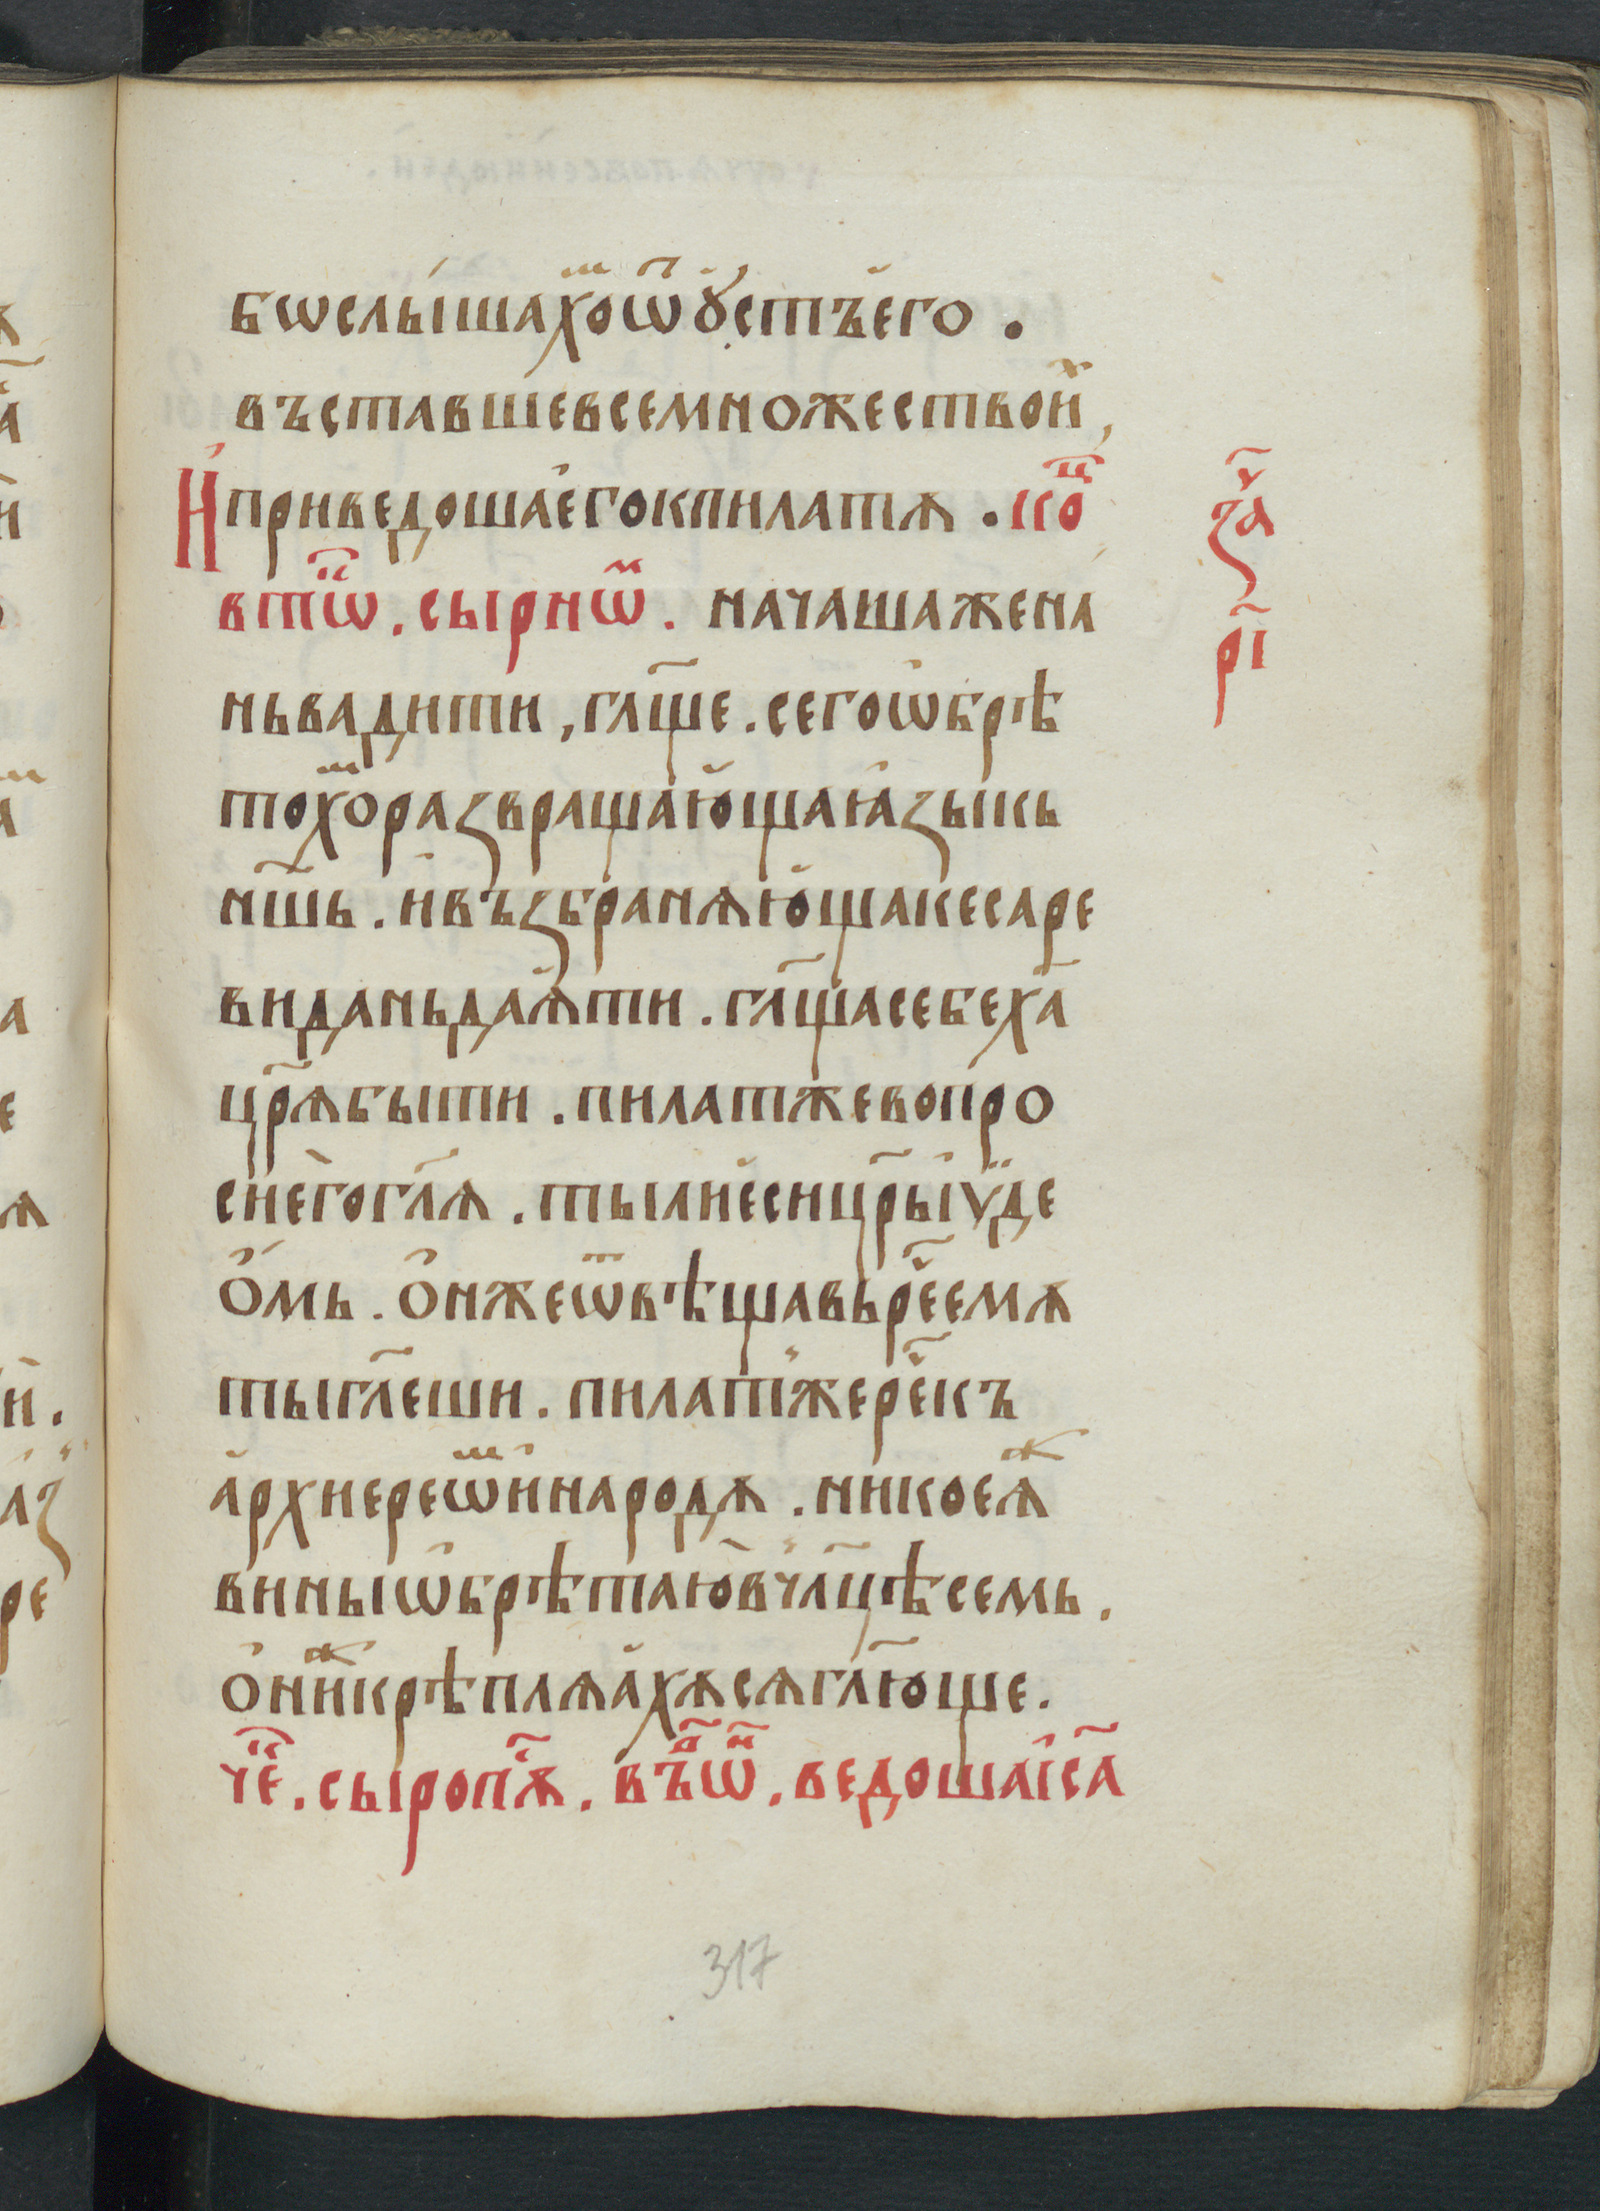 бѡслы́шахо́мъѿꙋ҆стъе҆го .
въставшевсемножествои҆х ,
И҆приведоша́е҆гокпилатѫ . ко҃ц
вто҃ⷡ҇ . сырноⷨ . начашажена
ньвадити , гл҃ще . сегоѡ҆брѣ
тохомъразвраща́ю҆щаꙗ҆зыкь
нш҃ь . и҆възбранѧю҆щакесаре
виданьдаѧ҆ти . гл҃щасебеха҃
цр҃ѧбыти . пилатжевопро
сие҆гогл҃ѧ . тылие҆сицр҃ьі҆ѵде
о҆мь . о҆нжеѿвѣщавьре҃че҆мѫ
тыгл҃еши . пилатжере҃чкъ
а҆рхиереѡⷨи҆народѫ . никоеѧⷤ
виныѡ҆брѣтаю҆вчл҃цѣсемь .
о҆ниⷤкрѣплѧа҆хѫсѧгл҃юще .
че҃ⷦ . сыропⷭ҇ѫ . въѡ҃ⷩ . ведошаі҆са҃
за҃ч
рі҃
317